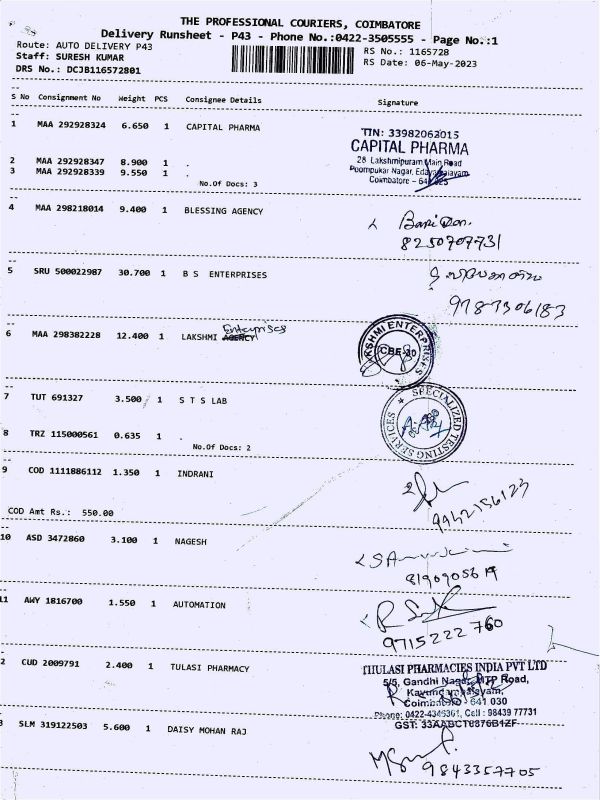 THE PROFESSIONAL COURIERS, COIMBATORE
Delivery Runsheet - P43 - Phone No.:0422-3505555 - Page No.:1
Route: AUTO DELIVERY P43
RS No.: 1165728
Staff: SURESH KUMAR
RS Date: 06-May-2023
DRS No.: DCJB116572801
S No Consignment No Weight PCS Consignee Details Signature
1 MAA 292928324 6.650 1 CAPITAL PHARMA
TIN: 33982062015
CAPITAL PHARMA
28 Lakshmipuram Main Road
Poompukar Nagar, Edayarpalayam
Coimbatore - 641 025
2 MAA 292928347 8.900 1 .
3 MAA 292928339 9.550 1 .
No.Of Docs: 3
4 MAA 298218014 9.400 1 BLESSING AGENCY
8250707731
5 SRU 500022987 30.700 1 B S ENTERPRISES
9787306183
6 MAA 298382228 12.400 1 LAKSHMI AGENCY Enterprises
LAKSHMI ENTERPRISES
CBE-30
7 TUT 691327 3.500 1 S T S LAB
SPECIALIZED TESTING SERVICES
8 TRZ 115000561 0.635 1 .
No.Of Docs: 2
9 COD 1111886112 1.350 1 INDRANI
9942156123
COD Amt Rs.: 550.00
10 ASD 3472860 3.100 1 NAGESH
8190905619
11 AWY 1816700 1.550 1 AUTOMATION
9715222760
2 CUD 2009791 2.400 1 TULASI PHARMACY
THULASI PHARMACIES INDIA PVT LTD
5/5, Gandhi Nagar, MTP Road,
Kavundampalayam,
Coimbatore - 641 030
Phone: 0422-4346361, Cell : 98439 77731
GST: 33AABCT0876B1ZF
3 SLM 319122503 5.600 1 DAISY MOHAN RAJ
9843357705